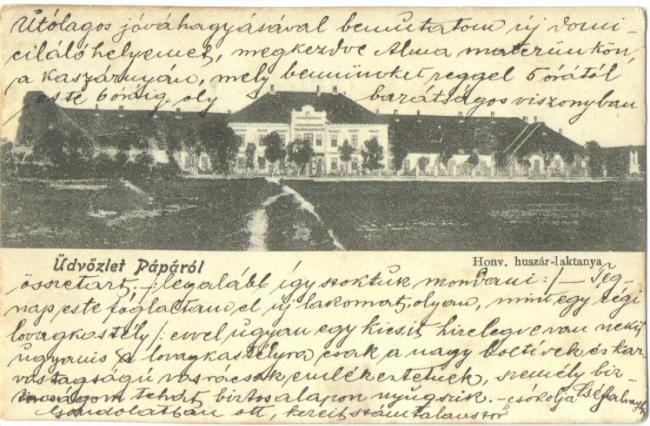 Utólagos jóváhagyásával bemutatom új domi-
ciláló helyemet, megkezdve Alma materünkön,
a kaszárnyán, mely bennünket reggel 5 órától
este 6 óráig oly barátságos viszonyban
Üdvözlet Pápáról
Honv. huszár-laktanya
összetart /: legalább így szoktuk mondani :/ — Teg-
nap este foglaltam el új lakomat, olyan, mint egy régi
lovagkastély /: evvel ugyan egy kicsit hizelegve van neki
ugyanis a lovagkastélyra csak a nagy boltívek és kar
vastagságú vasrácsok emlékeztetnek, személy biz-
tehát biztos alapon nyugszik. — csókolja
Gondolatban ott, kezeit számtalanszor